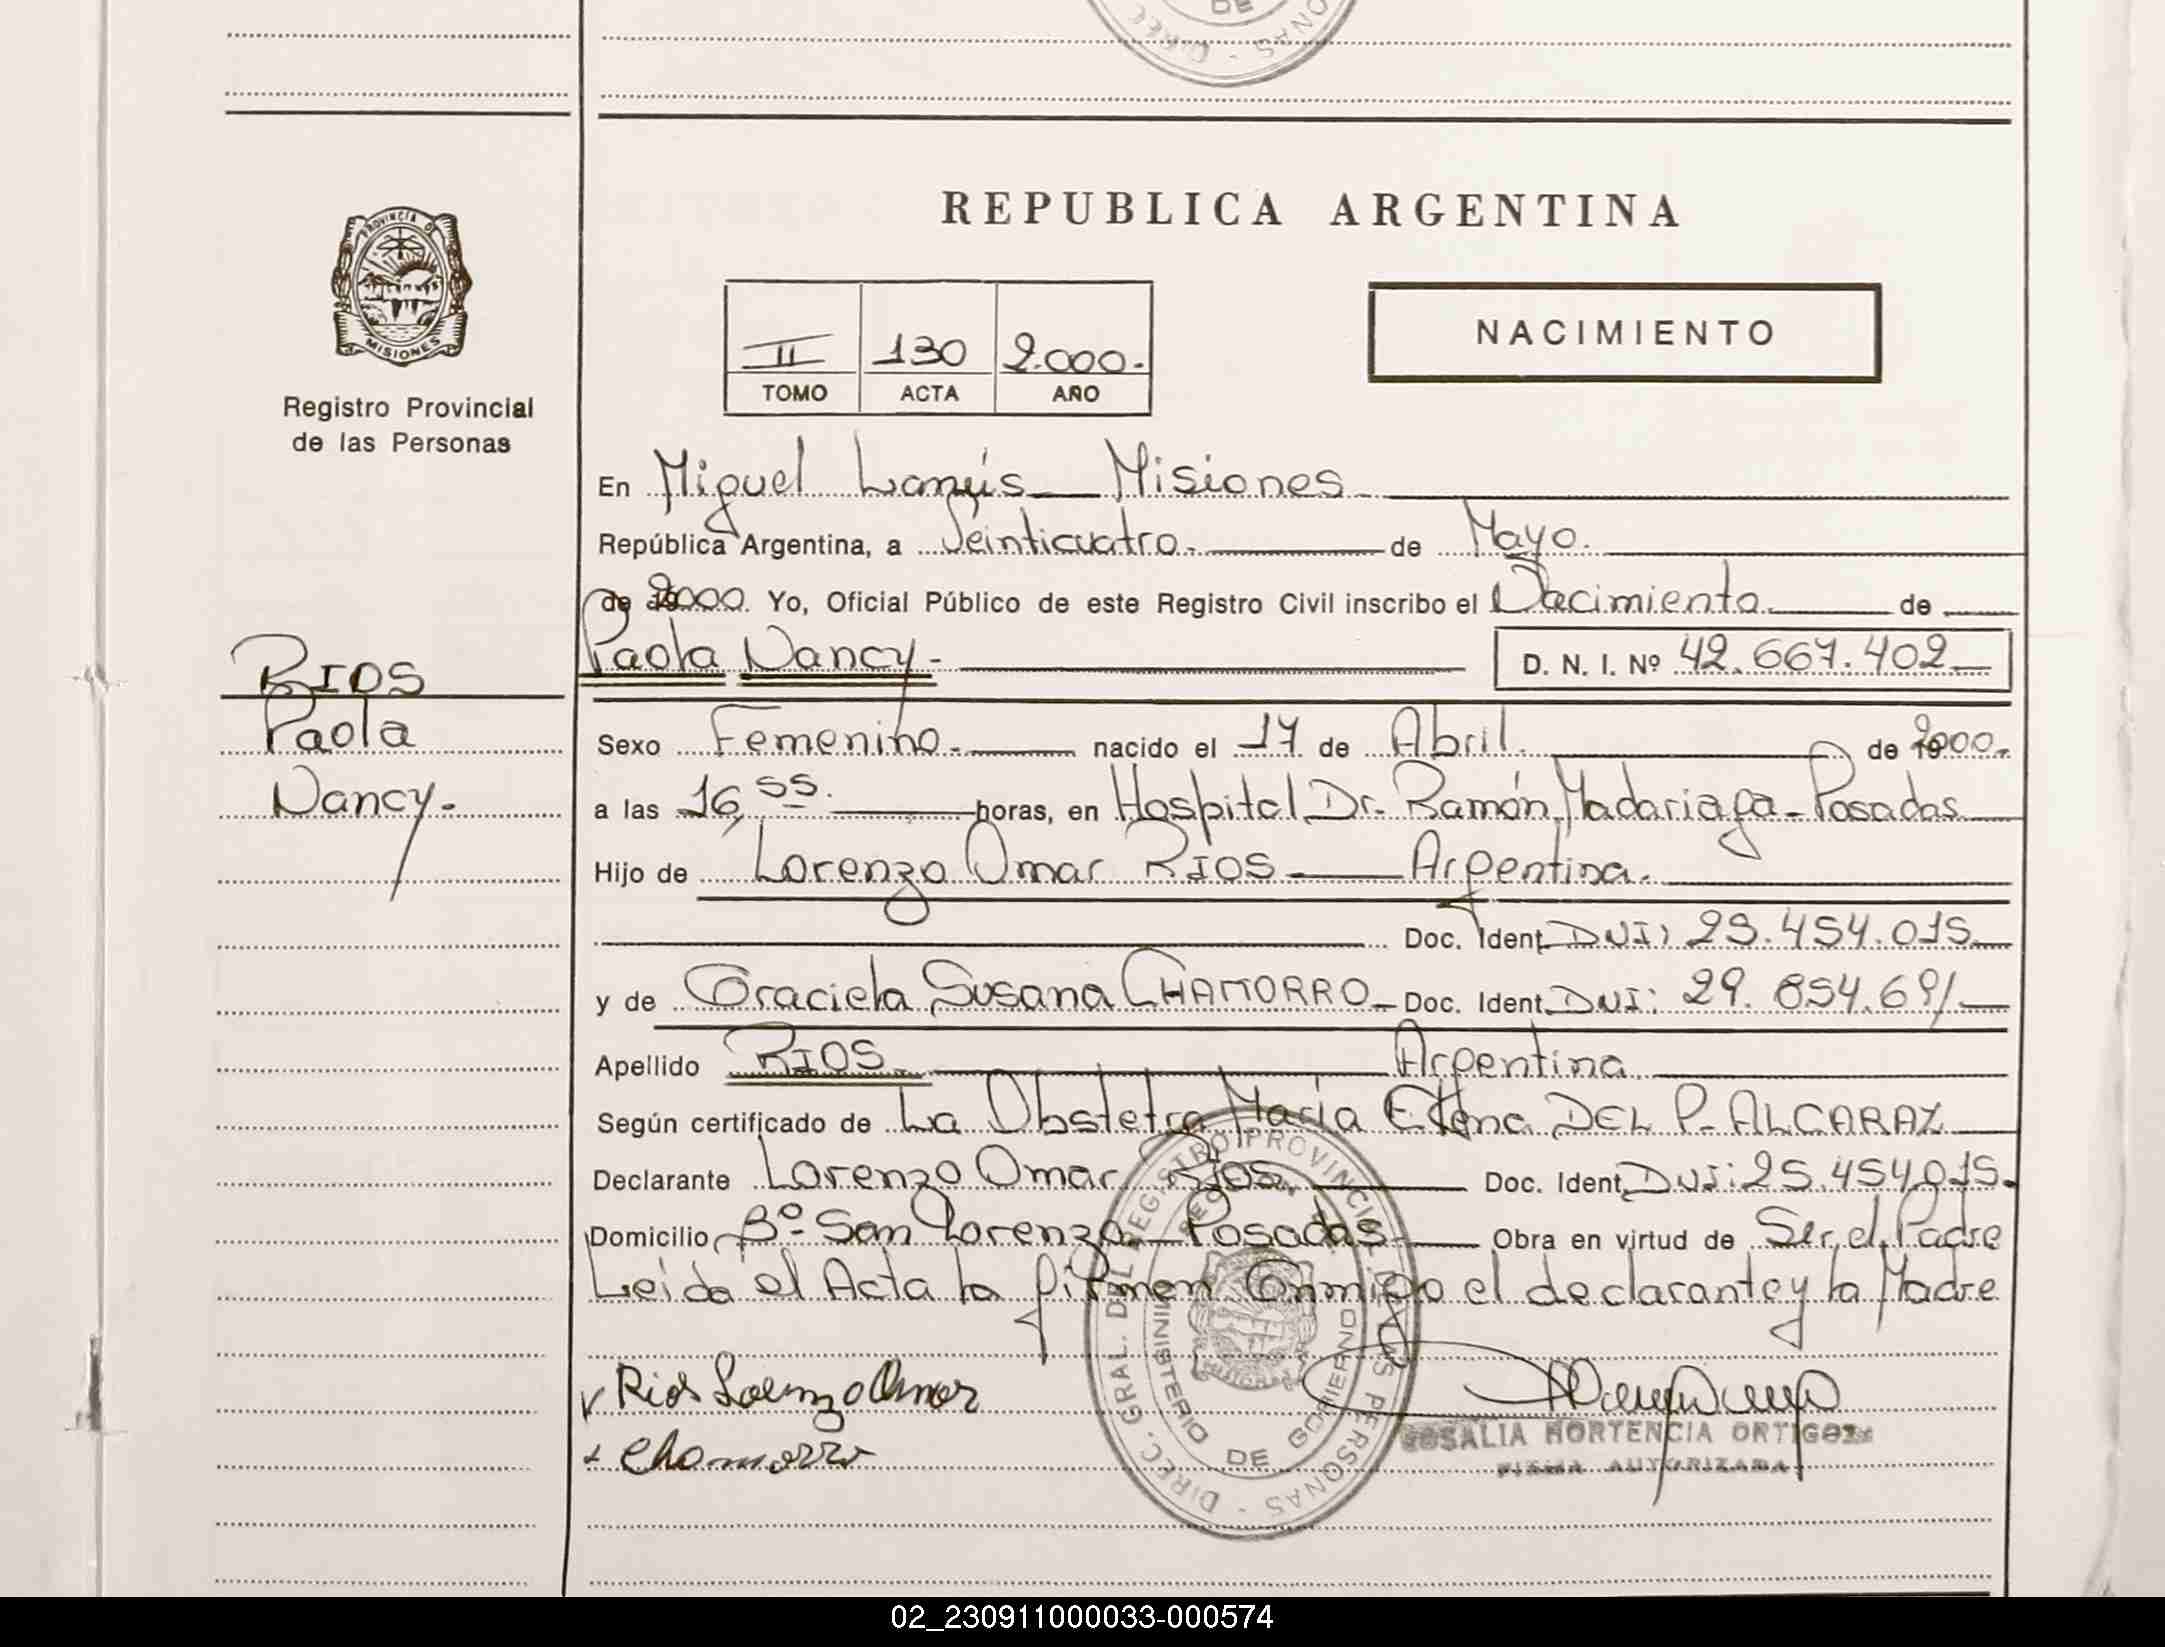 DE
DIREC
ONAS -
REPUBLICA ARGENTINA
PROVINCIA DE
MISIONES
Registro Provincial
de las Personas
II 130 2.000.-
TOMO ACTA AÑO
NACIMIENTO
En Miguel Lanús - Misiones
República Argentina, a Veinticuatro.- de Mayo.
de 2000. Yo, Oficial Público de este Registro Civil inscribo el Nacimiento de
Paola Nancy.-
D. N. I. Nº 42.667.402
RIOS
Paola
Nancy.-
Sexo Femenino.- nacido el 17 de Abril. de 2000.-
a las 16,55. horas, en Hospital Dr. Ramón Madariaga - Posadas
Hijo de Lorenzo Omar RIOS - Argentina.
Doc. Ident. DNI: 25.454.015
y de Graciela Susana CHAMORRO - Doc. Ident. DNI: 29.854.691
Apellido RIOS Argentina
Según certificado de La Obstetra María Elena DEL P. ALCARAZ
Declarante Lorenzo Omar Rios. Doc. Ident. DNI: 25.454.015.
Domicilio Bº San Lorenzo - Posadas Obra en virtud de Ser el Padre
Leida el Acta la firman Conmigo el declarante y la Madre
Rios Lorenzo Omar
Chamorro
ROSALIA HORTENCIA ORTIGOZA
FIRMA AUTORIZADA
DIREC. GRAL. DEL REGISTRO PROVINCIAL DE LAS PERSONAS -
MINISTERIO DE GOBIERNO
02_230911000033-000574